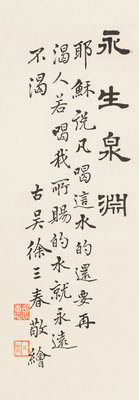 永生泉淵
耶穌説凡喝這水的還要再
渴人若喝我所賜的水就永遠
不渴
古吳徐三春敬繪